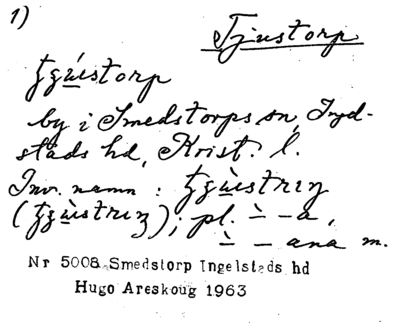 1)
Tjustorp
ꞔꞔústorp
by i Smedstorps sn, Ingel-
stads hd, Krist. l.
Inv. namn :
pl. -̀ - a,
-̀ - ana m.
Nr 5008 Smedstorp Ingelstads hd
Hugo Areskoug 1963